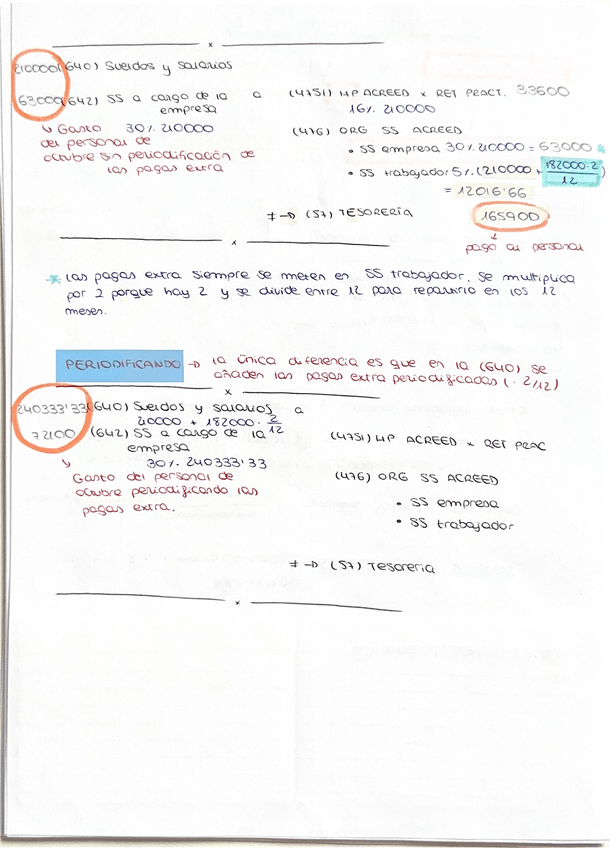 x
210000 (640) Sueldos y salarios
63000 (642) SS a cargo de la a (4751) HP ACREED x RET PRACT. 33600
empresa 16%. 210000
↳ Gasto 30%. 210000 (476) ORG SS ACREED
del personal de • SS empresa 30%. 210000 = 63000 *
octubre sin periodificación de • SS trabajador 5%. (210000 + 182000·2/12)
las pagas extra = 12016'66
≠ → (57) TESORERÍA 165900
↓
pago al personal
x
* las pagas extra siempre se meten en SS trabajador. Se multiplica
por 2 porque hay 2 y se divide entre 12 para repartirlo en los 12
meses.
PERIODIFICANDO → la única diferencia es que en la (640) se
añaden las pagas extra periodificadas (· 2/12)
x
240333'33 (640) Sueldos y salarios a
20000 + 182000 · 2/12
72100 (642) SS a cargo de la (4751) HP ACREED x RET PRAC
empresa
↳ 30%. 240333'33 (476) ORG SS ACREED
Gasto del personal de
octubre periodificando las • SS empresa
pagas extra. • SS trabajador
≠ → (57) Tesoreria
x